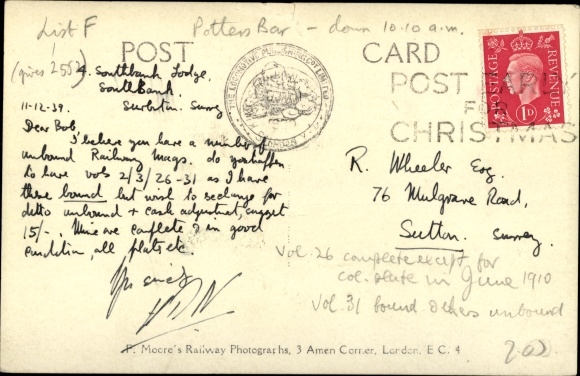 List F
Potters Bar - down 10.10 a.m.
POST CARD
(gives 2552)
4. Southbank Lodge,
SouthBank,
Surbiton. Surrey
11-12-39.
Dear Bob,
I believe you have a number of
unbound Railway Mags. do you happen
to have vols 2/3/26-31 as I have
these bound but wish to exchange for
ditto unbound + cash adjustment, suggest
15/-. Mine are complete & in good
condition, all plates etc.
POST EARLY
FOR
CHRISTMAS
POSTAGE REVENUE
1D
R. Wheeler Esq.
76 Mulgrave Road,
Sutton. Surrey.
Vol. 26 complete except for
col. plate in June 1910
Vol. 31 bound others unbound
P. Moore's Railway Photographs, 3 Amen Corner, London, E C. 4